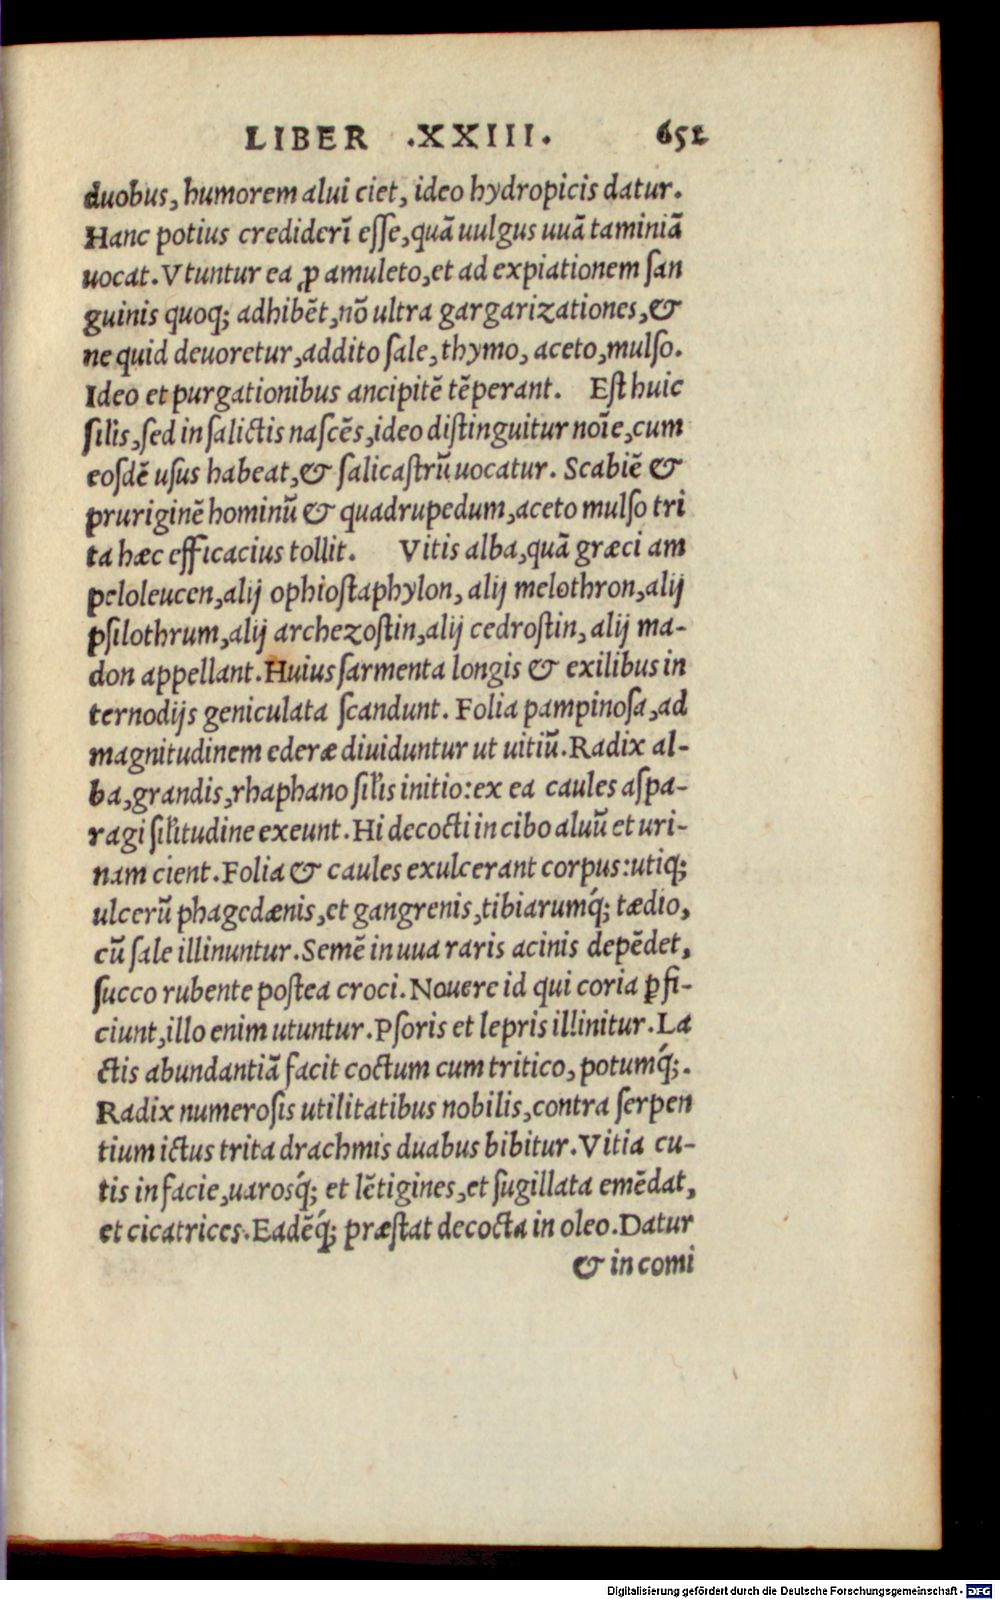 LIBER .XXIII. 651
duobus, humorem alui ciet, ideo hydropicis datur.
Hanc potius credideri᷉ esse, quã uulgus uuã taminiã
uocat. Vtuntur ea ꝓ amuleto, et ad expiationem san
guinis quoq; adhibẽt, nõ ultra gargarizationes, &
ne quid deuoretur, addito sale, thymo, aceto, mulso.
Ideo et purgationibus ancipitẽ tẽperant. Est huic
sil̃is, sed in salictis nascẽs, ideo distinguitur noĩe, cum
eosdẽ usus habeat, & salicastrũ uocatur. Scabiẽ &
pruriginẽ hominũ & quadrupedum, aceto mulso tri
ta hæc efficacius tollit. Vitis alba, quã græci am
peloleucen, alij ophiostaphylon, alij melothron, alij
psilothrum, alij archezostin, alij cedrostin, alij ma-
don appellant. Huius sarmenta longis & exilibus in
ternodijs geniculata scandunt. Folia pampinosa, ad
magnitudinem ederæ diuiduntur ut uitiũ. Radix al-
ba, grandis, rhaphano sil̃is initio: ex ea caules aspa-
ragi sil̃itudine exeunt. Hi decocti in cibo aluũ et uri-
nam cient. Folia & caules exulcerant corpus: utiq;
ulcerũ phagedænis, et gangrenis, tibiarumq́; tædio,
cũ sale illinuntur. Semẽ in uua raris acinis depẽdet,
succo rubente postea croci. Nouere id qui coria ꝑfi-
ciunt, illo enim utuntur. Psoris et lepris illinitur. La
ctis abundantiã facit coctum cum tritico, potumq́;.
Radix numerosis utilitatibus nobilis, contra serpen
tium ictus trita drachmis duabus bibitur. Vitia cu-
tis in facie, uarosq́; et lẽtigines, et sugillata emẽdat,
et cicatrices. Eadẽq́; præstat decocta in oleo. Datur
& in comi
Digitalisierung gefördert durch die Deutsche Forschungsgemeinschaft - DFG